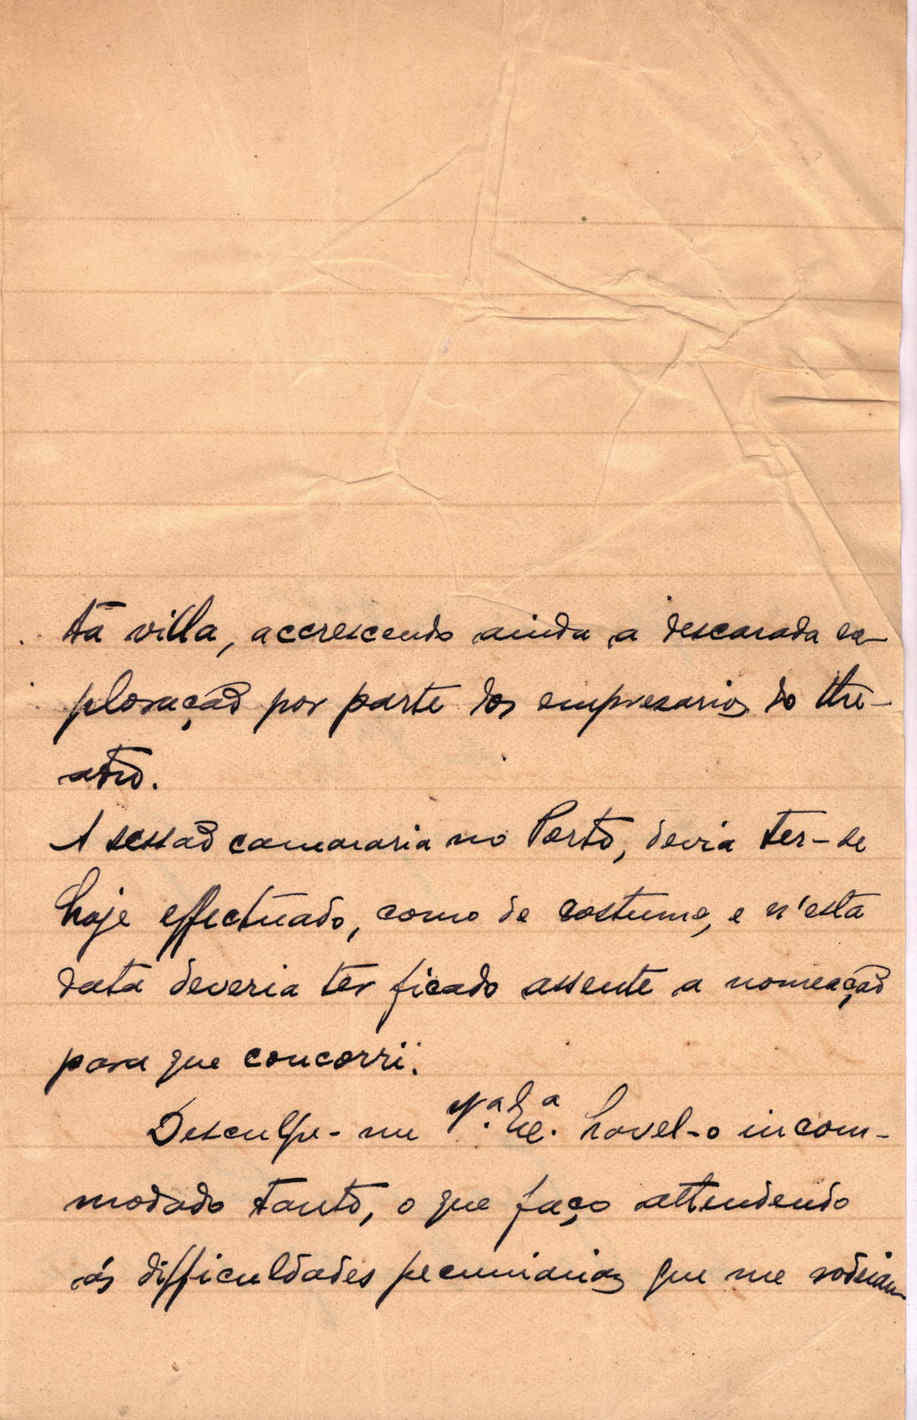 ta villa, accrescendo ainda a descarada ex-
ploração por parte dos empresarios do the-
atro.
A sessão camararia no Porto, devia ter-se
hoje effectuado, como de costume, e n'esta
data deveria ter ficado assente a nomeação
para que concorri.
Desculpe-me V.ª Ex.ª havel-o incom-
modado tanto, o que faço attendendo
ás difficuldades pecuniarias que me rodeiam